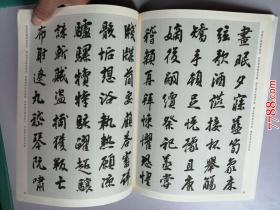 晝眠夕寐藍筍象床
弦歌酒讌接杯舉觴
矯手頓足悅豫且康
嫡後嗣續祭祀蒸嘗
稽顙再拜悚懼恐惶
牋牒簡要顧答審詳
骸垢想浴執熱願涼
驢騾犢特駭躍超驤
誅斬賊盜捕獲叛亡
布射遼丸嵇琴阮嘯